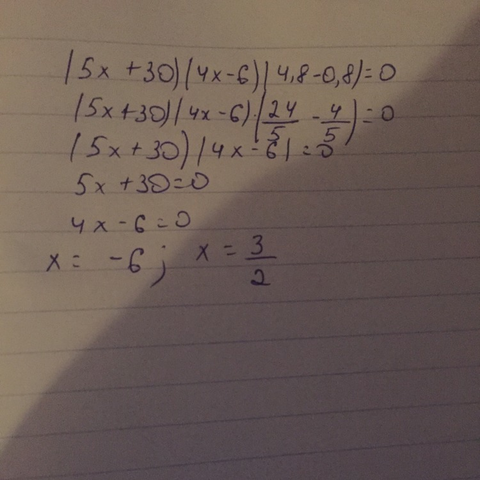 (5x+30)(4x-6)(4,8-0,8)=0
(5x+30)(4x-6)·(24/5-4/5)=0
(5x+30)(4x-6)=0
5x+30=0
4x-6=0
x=-6; x=3/2